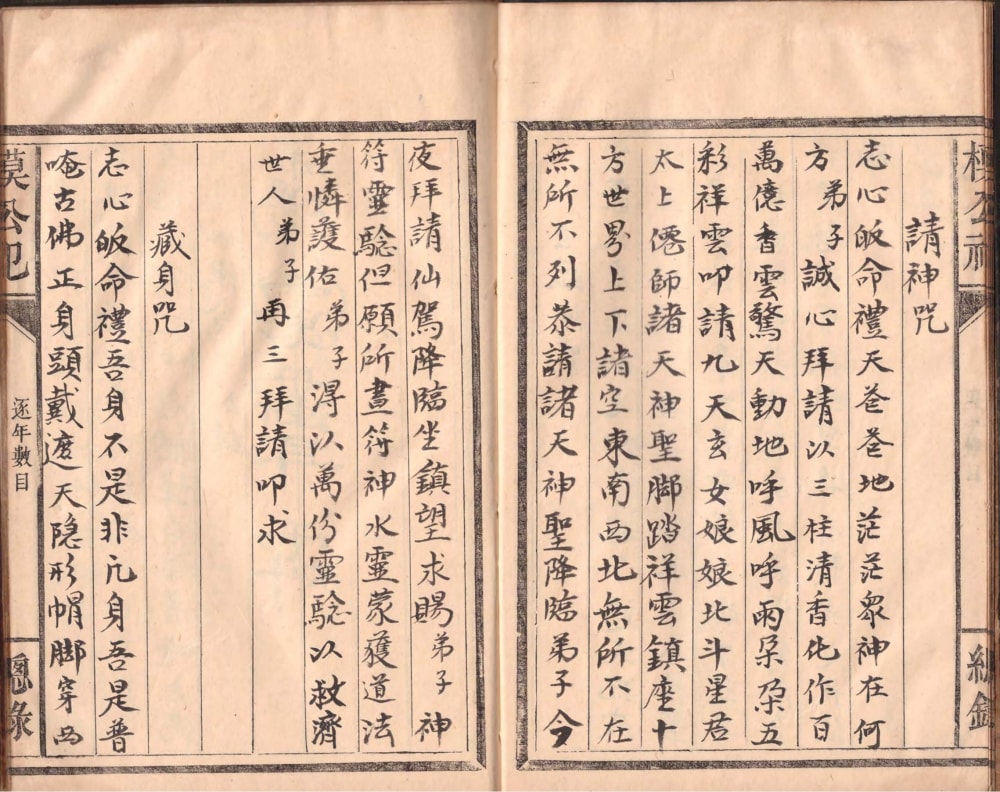 請神咒
志心皈命禮天蒼蒼地茫茫眾神在何
方弟子誠心拜請以三柱清香化作百
萬億書雲驚天動地呼風呼雨朵朵五
彩祥雲叩請九天玄女娘娘北斗星君
太上僊師諸天神聖脚踏祥雲鎮座十
方世界上下諸空東南西北無所不在
無所不列恭請諸天神聖降臨弟子今
夜拜請仙駕降臨坐鎮望求賜弟子神
符靈騐但願所畫符神水靈蒙獲道法
垂憐護佑弟子淂以萬份靈騐以救濟
世人弟子再三拜請叩求
藏身咒
志心皈命禮吾身不是非凢身吾是普
唵古佛正身頭戴遮天隐形帽脚穿西
逐年數目
總錄